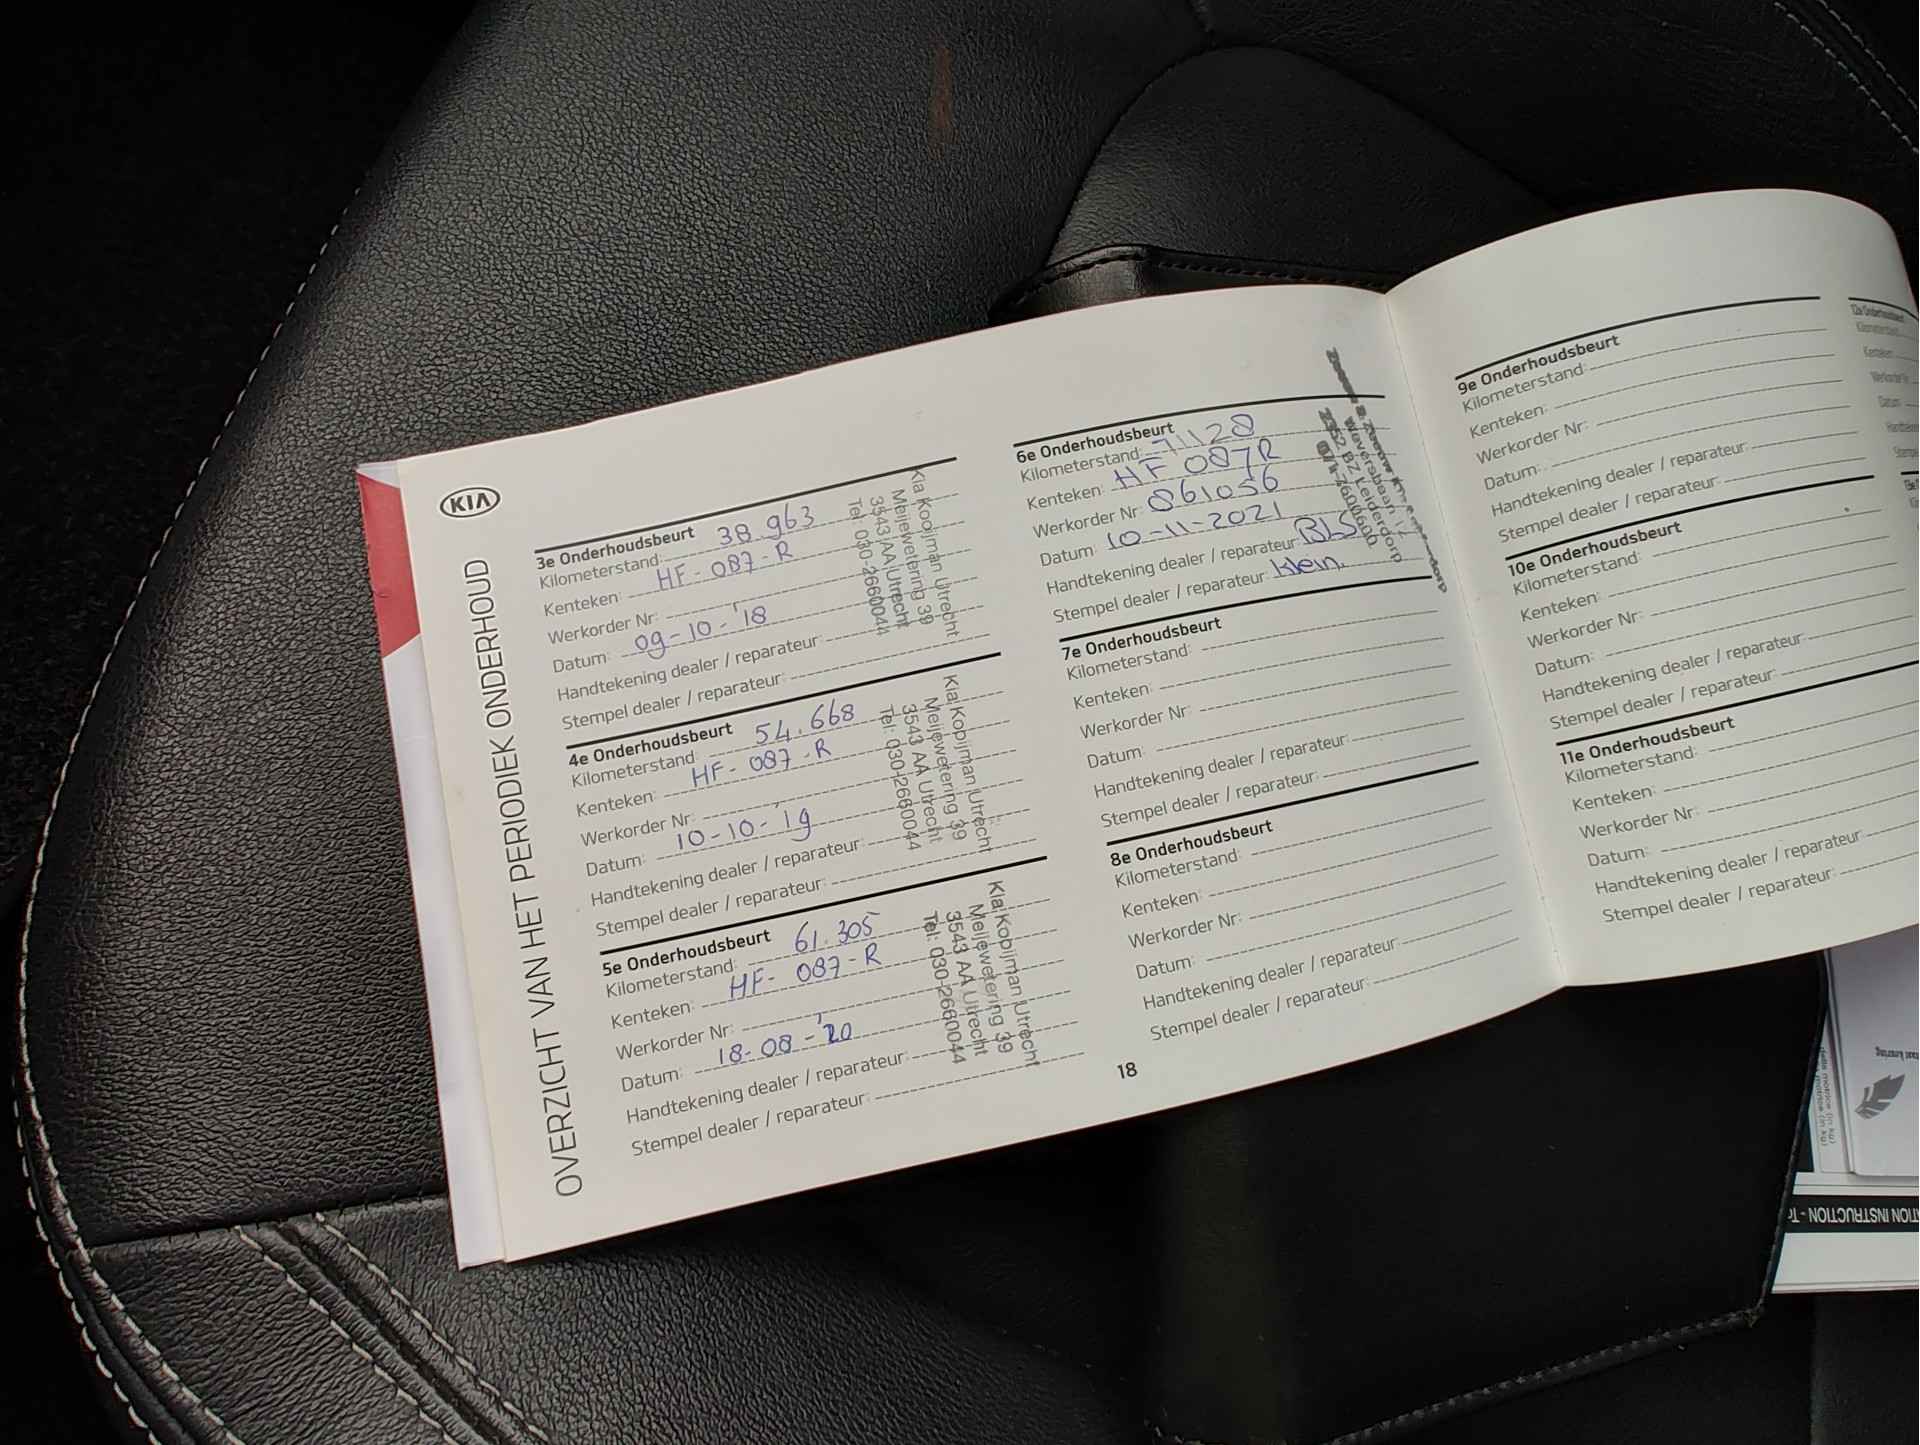 KIA
OVERZICHT VAN HET PERIODIEK ONDERHOUD
3e Onderhoudsbeurt
Kilometerstand: 38.963
Kenteken: HF-087-R
Werkorder Nr:
Datum: 09-10-'18
Handtekening dealer / reparateur:
Stempel dealer / reparateur:
Kia Kooijman Utrecht
Meijewetering 39
3543 AA Utrecht
Tel: 030-2660044
4e Onderhoudsbeurt
Kilometerstand: 54.668
Kenteken: HF-087-R
Werkorder Nr:
Datum: 10-10-'19
Handtekening dealer / reparateur:
Stempel dealer / reparateur:
Kia Kooijman Utrecht
Meijewetering 39
3543 AA Utrecht
Tel: 030-2660044
5e Onderhoudsbeurt
Kilometerstand: 61.305
Kenteken: HF-087-R
Werkorder Nr:
Datum: 18-08-'20
Handtekening dealer / reparateur:
Stempel dealer / reparateur:
Kia Kooijman Utrecht
Meijewetering 39
3543 AA Utrecht
Tel: 030-2660044
6e Onderhoudsbeurt
Kilometerstand: 71128
Kenteken: HF 087R
Werkorder Nr: 861056
Datum: 10-11-2021
Handtekening dealer / reparateur: BLS
Stempel dealer / reparateur: klein.
2352 BZ Leiderdorp
7e Onderhoudsbeurt
Kilometerstand:
Kenteken:
Werkorder Nr:
Datum:
Handtekening dealer / reparateur:
Stempel dealer / reparateur:
8e Onderhoudsbeurt
Kilometerstand:
Kenteken:
Werkorder Nr:
Datum:
Handtekening dealer / reparateur:
Stempel dealer / reparateur:
18
9e Onderhoudsbeurt
Kilometerstand:
Kenteken:
Werkorder Nr:
Datum:
Handtekening dealer / reparateur:
Stempel dealer / reparateur:
10e Onderhoudsbeurt
Kilometerstand:
Kenteken:
Werkorder Nr:
Datum:
Handtekening dealer / reparateur:
Stempel dealer / reparateur:
11e Onderhoudsbeurt
Kilometerstand:
Kenteken:
Werkorder Nr:
Datum:
Handtekening dealer / reparateur:
Stempel dealer / reparateur:
12e Onderhoudsbeurt
Kenteken:
Werkorder Nr:
Datum:
INSTRUCTION